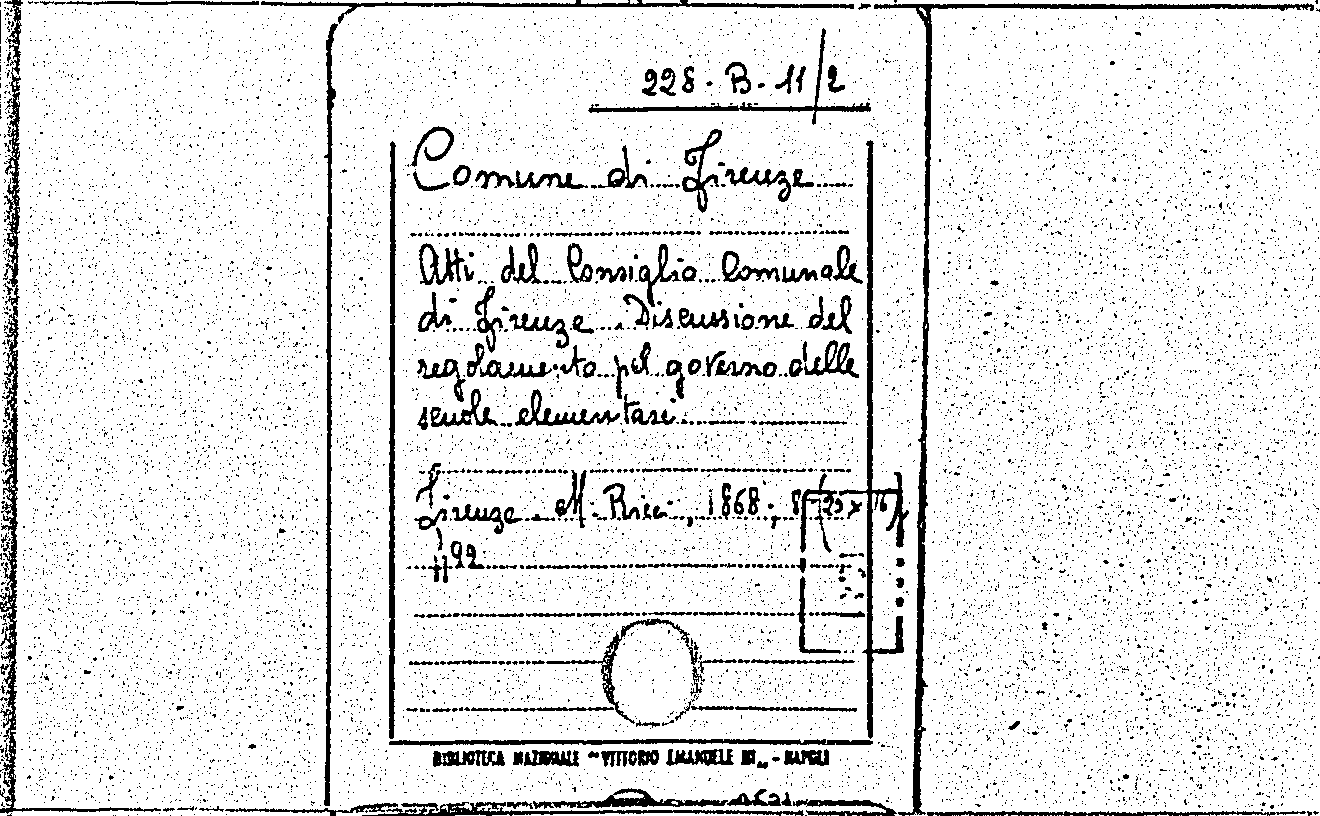 228-B-11/2
Comune di Firenze
Atti del Consiglio Comunale
di Firenze. Discussione del
regolamento pel governo delle
scuole elementari.
Firenze. M. Ricci, 1868; 8° (25 x 16)
92
BIBLIOTECA NAZIONALE "VITTORIO EMANUELE III„ - NAPOLI